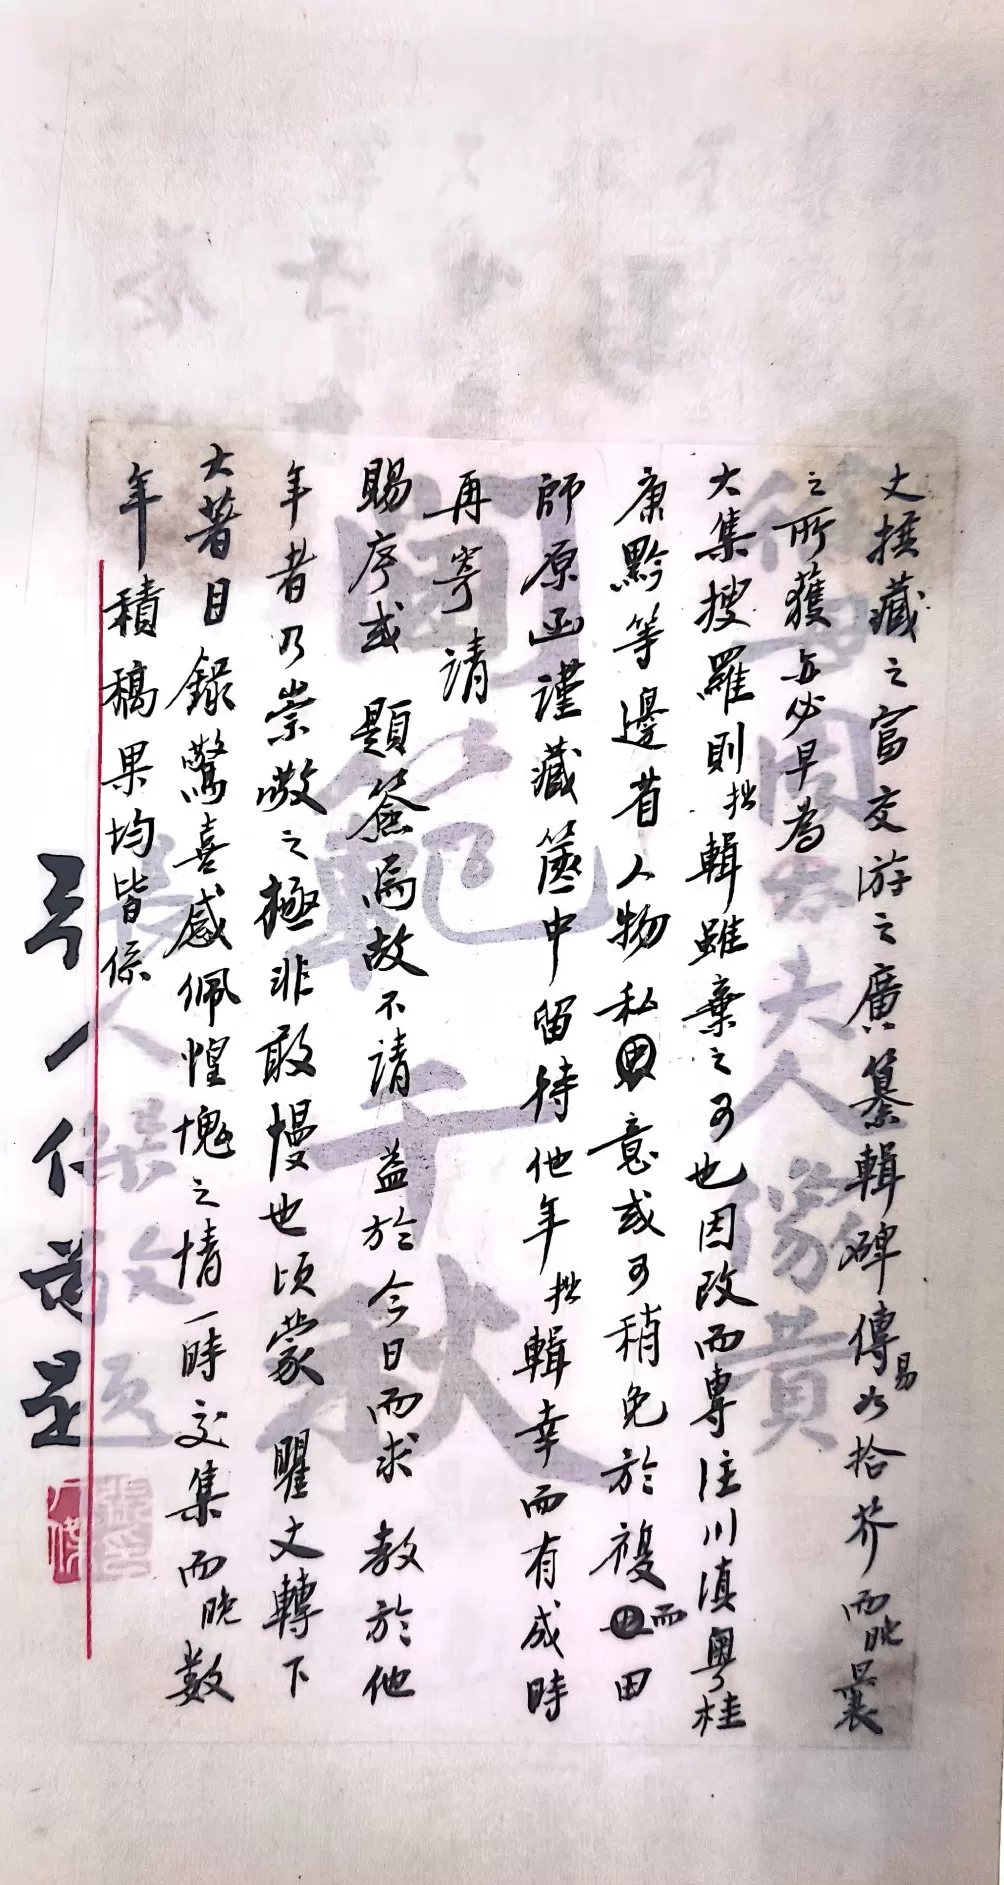 丈撰藏之富交游之廣纂輯碑傳易如拾芥而晚曩
之所獲與必早為
大集搜羅則拙輯雖棄之可也因改而專注川滇粵桂
康黔等邊省人物私意或可稍免於複而田
師原函謹藏篋中留待他年拙輯幸而有成時
再寄請
賜序或題簽焉故不請益於今日而求教於他
年者乃崇敬之極非敢慢也頃蒙瞿丈轉下
大著目錄驚喜感佩惶愧之情一時交集而晚數
年積稿果均皆係
夫人
範千秋